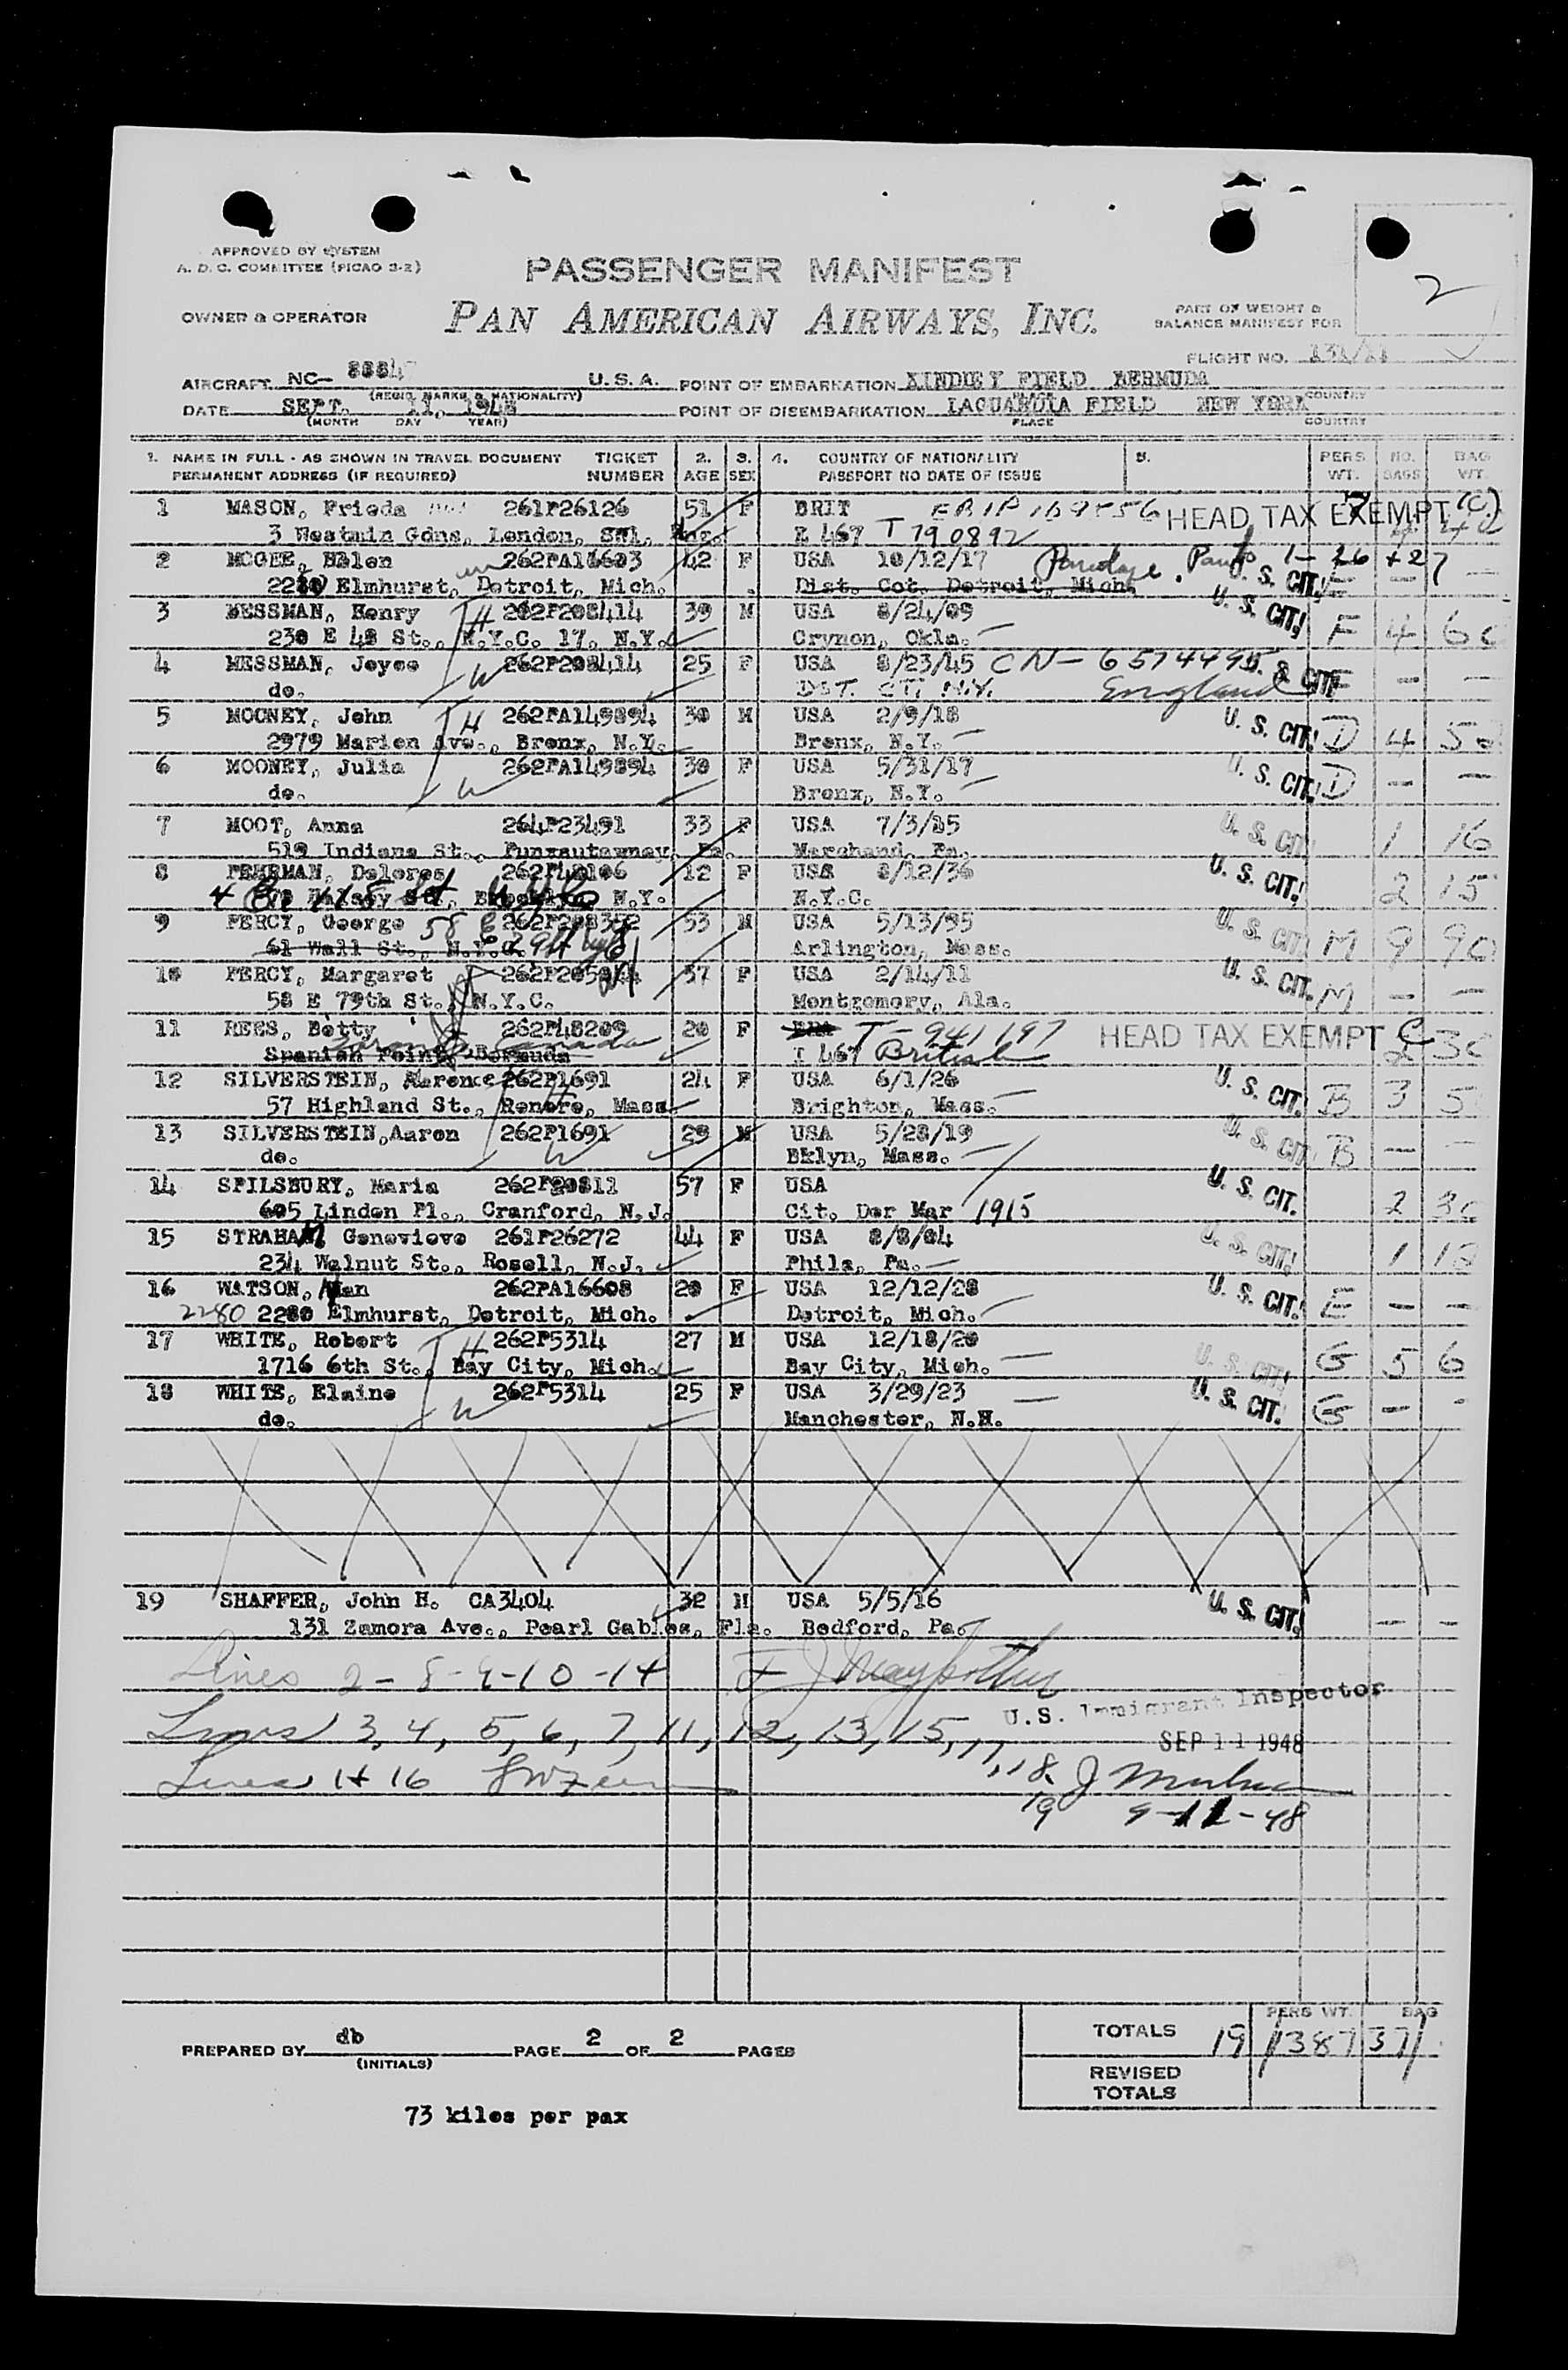 2
APPROVED BY SYSTEM
A. D. C. COMMITTEE (PICAO 3-2)
PASSENGER MANIFEST
OWNER & OPERATOR
PAN AMERICAN AIRWAYS, INC.
PART OF WEIGHT &
BALANCE MANIFEST FOR
FLIGHT NO.
AIRCRAFT NC- U.S.A. POINT OF EMBARKATION KINDLEY FIELD BERMUDA
(REGIS. MARKS & NATIONALITY) PLACE COUNTRY
DATE SEPT. 11, 1948 POINT OF DISEMBARKATION LAGUARDIA FIELD NEW YORK
(MONTH DAY YEAR) PLACE COUNTRY
1. NAME IN FULL - AS SHOWN IN TRAVEL DOCUMENT TICKET 2. 3. 4. COUNTRY OF NATIONALITY 5. PERS NO. BAG
PERMANENT ADDRESS (IF REQUIRED) NUMBER AGE SEX PASSPORT NO DATE OF ISSUE WT. BAGS WT.
1 MASON, Frieda 261P26126 51 F BRIT HEAD TAX EXEMPT (C)
3 Westmin Gdns, London, SW1, Eng. I 467 T 790892
2 MCGEE, Helen 42 F USA 10/12/17 1-26+27
Elmhurst, Detroit, Mich. Dist. Cot. Detroit, Mich. U. S. CIT. E - -
3 MESSMAN, Henry H 262P208414 39 M USA 8/24/09 U. S. CIT! F 4
230 E 48 St., N.Y.C. 17, N.Y. Okla.
4 MESSMAN, Joyce W 262P208414 25 F USA 8/23/45 CN- 6574495 U. S. CIT! F - -
do. DST. CT. N.Y. England
5 MOONEY, John H 262PA149894 30 M USA 2/9/18 U. S. CIT! D 4
2979 Marion Ave., Bronx, N.Y. Bronx, N.Y.
6 MOONEY, Julia W 262PA149894 30 F USA 5/31/17 U. S. CIT! D - -
do. Bronx, N.Y.
7 MOOT, Anna 264P23491 33 F USA 7/3/15 U. S. CIT 1 16
519 Indiana St., Punxsutawney, Pa. Marchand, Pa.
8 PEHRMAN, Dolores 12 F USA 8/12/36 U. S. CIT! 2 15
N.Y. N.Y.C.
9 PERCY, George 53 M USA 5/13/95 U. S. CIT! M 9 90
61 Wall St., N.Y.C. 58 E 79th Arlington, Mass.
10 PERCY, Margaret W 37 F USA 2/14/11 U. S. CIT. M - -
58 E 79th St., N.Y.C. Montgomery, Ala.
11 REES, Betty 262P48209 20 F T-941197 HEAD TAX EXEMPT C
Spanish Point, Bermuda Toronto Canada I 467 British
12 SILVERSTEIN, 262P1691 24 F USA 6/1/26 U. S. CIT! B 3
57 Highland St., Mass. Brighton, Mass.
13 SILVERSTEIN, Aaron 262P1691 29 M USA 5/28/19 U. S. CIT B - -
do. Bklyn, Mass.
14 SPILSBURY, Maria 262P20811 57 F USA U. S. CIT. 2
605 Linden Pl., Cranford, N.J. Cit. Der Mar 1915
15 STRAHAN Genevieve 261P26272 44 F USA 8/8/04 U. S. CIT! 1
234 Walnut St., Rosell, N.J. Phila, Pa.
16 WATSON, Nan 262PA16608 20 F USA 12/12/28 U. S. CIT! E - -
2280 2280 Elmhurst, Detroit, Mich. Detroit, Mich.
17 WHITE, Robert H 262P5314 27 M USA 12/18/20 U. S. CIT! G 5 6
1716 6th St., Bay City, Mich. Bay City, Mich.
18 WHITE, Elaine W 262P5314 25 F USA 3/29/23 U. S. CIT! G - -
do. Manchester, N.H.
19 SHAFFER, John H. CA3404 32 M USA 5/5/16 U. S. CIT! - -
131 Zamora Ave., Pearl Gables, Fla. Bedford, Pa.
Lines 2-8-9-10-14
U.S. Immigrant Inspector
Lines 3, 4, 5, 6, 7, 11, 12, 13, 15, 17, 18, 19
SEP 11 1948
Lines 1+16
9-11-48
TOTALS 19 1387 371
PERS WT. BAG
PREPARED BY db PAGE 2 OF 2 PAGES
(INITIALS)
REVISED
TOTALS
73 kilos per pax